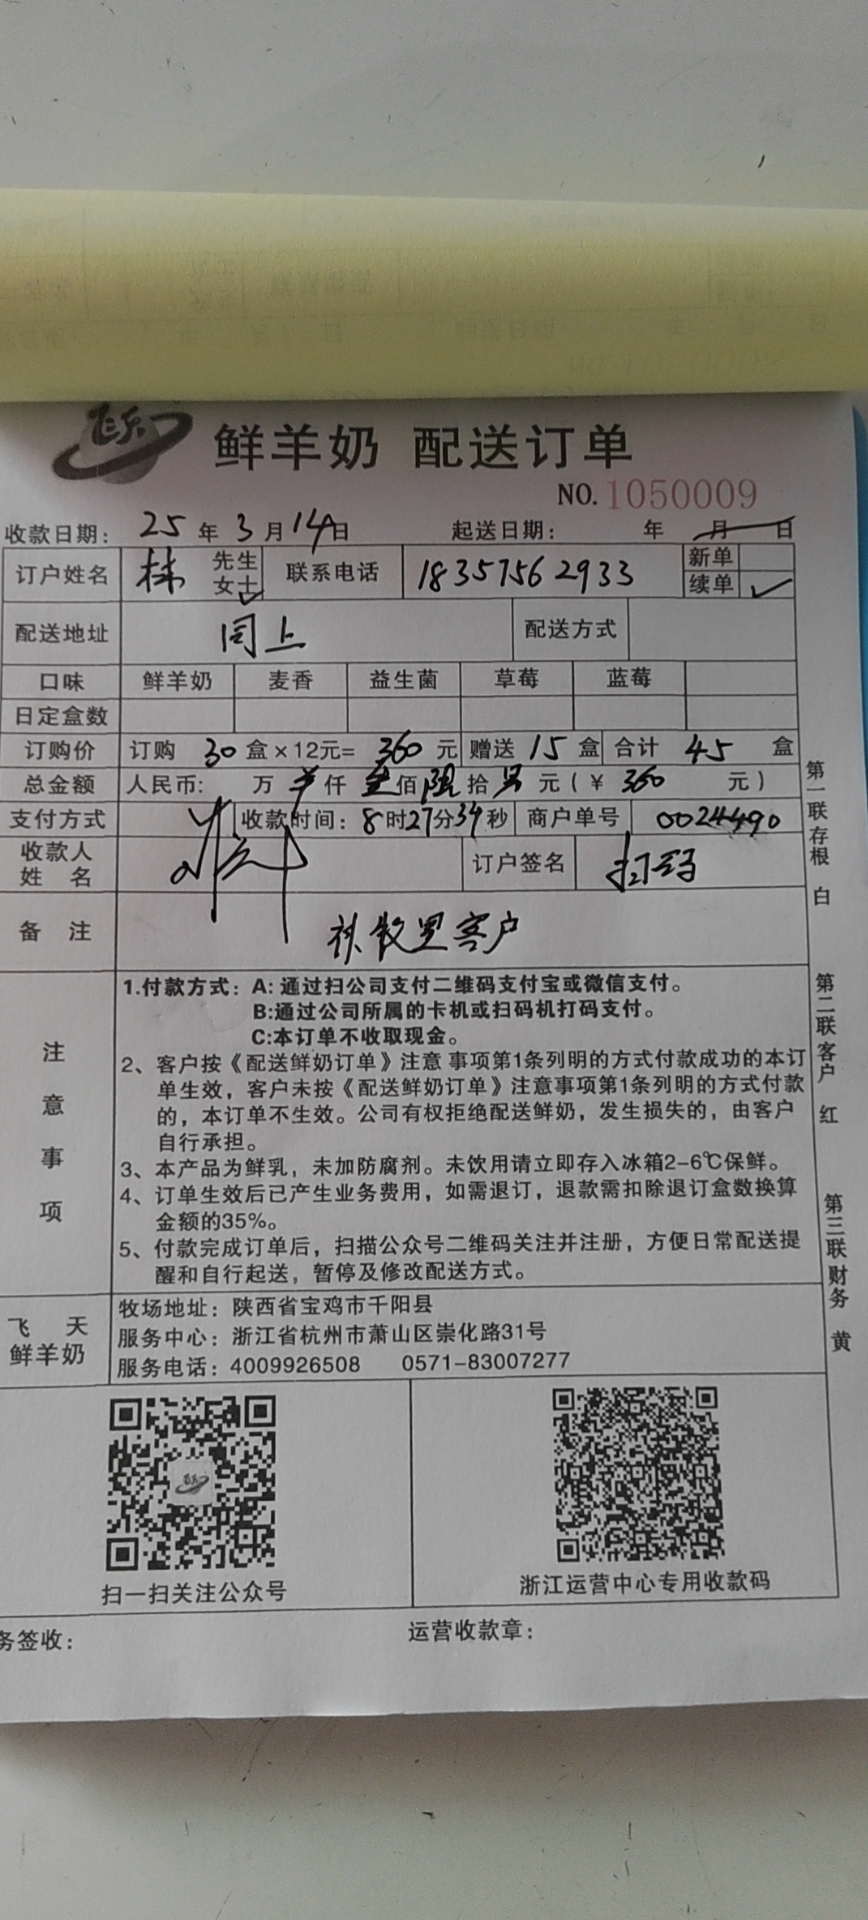 飞天
鲜羊奶 配送订单
NO.1050009
收款日期: 25 年 3 月 14 日 起送日期: 年 月 日
订户姓名 林 先生 女士 ✓ 联系电话 18357562933 新单 续单 ✓
配送地址 同上 配送方式
口味 鲜羊奶 麦香 益生菌 草莓 蓝莓
日定盒数
订购价 订购 30 盒×12元= 360 元 赠送 15 盒 合计 45 盒
总金额 人民币: 万 仟 叁佰 陆拾 另 元(¥ 360 元)
支付方式 ✓ 收款时间: 8时27分34秒 商户单号 0024490
收款人姓名 订户签名 扫码
备 注 客户
注意事项
1.付款方式: A: 通过扫公司支付二维码支付宝或微信支付。
B:通过公司所属的卡机或扫码机打码支付。
C:本订单不收取现金。
2、客户按《配送鲜奶订单》注意 事项第1条列明的方式付款成功的本订
单生效，客户未按《配送鲜奶订单》注意事项第1条列明的方式付款
的，本订单不生效。公司有权拒绝配送鲜奶，发生损失的，由客户
自行承担。
3、本产品为鲜乳，未加防腐剂。未饮用请立即存入冰箱2-6℃保鲜。
4、订单生效后已产生业务费用，如需退订，退款需扣除退订盒数换算
金额的35%。
5、付款完成订单后，扫描公众号二维码关注并注册，方便日常配送提
醒和自行起送，暂停及修改配送方式。
飞 天
鲜羊奶
牧场地址: 陕西省宝鸡市千阳县
服务中心: 浙江省杭州市萧山区崇化路31号
服务电话: 4009926508 0571-83007277
扫一扫关注公众号
浙江运营中心专用收款码
务签收:
运营收款章:
第一联存根 白
第二联客户 红
第三联财务 黄